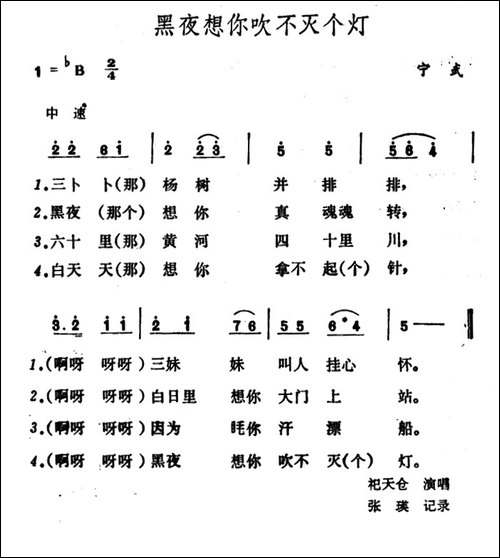 黑夜想你吹不灭个灯
1=♭B 2/4 宁武
中速
2 2 6 1 | 2 2 3 | 5 5 | 5 6 4 |
1.三卜 卜(那) 杨树 并 排 排,
2.黑夜 (那个) 想你 真 魂魂 转,
3.六十 里(那) 黄河 四 十里 川,
4.白天 天(那) 想你 拿不 起(个) 针,
3. 2 1 1 | 2 1 7 6 | 5 5 6 4 | 5 —— ‖
1.(啊呀 呀呀) 三妹 妹 叫人 挂心 怀。
2.(啊呀 呀呀) 白日里 想你 大门 上 站。
3.(啊呀 呀呀) 因为 眊你 汗 漂 船。
4.(啊呀 呀呀) 黑夜 想你 吹不 灭(个) 灯。
祀天仓 演唱
张瑛 记录